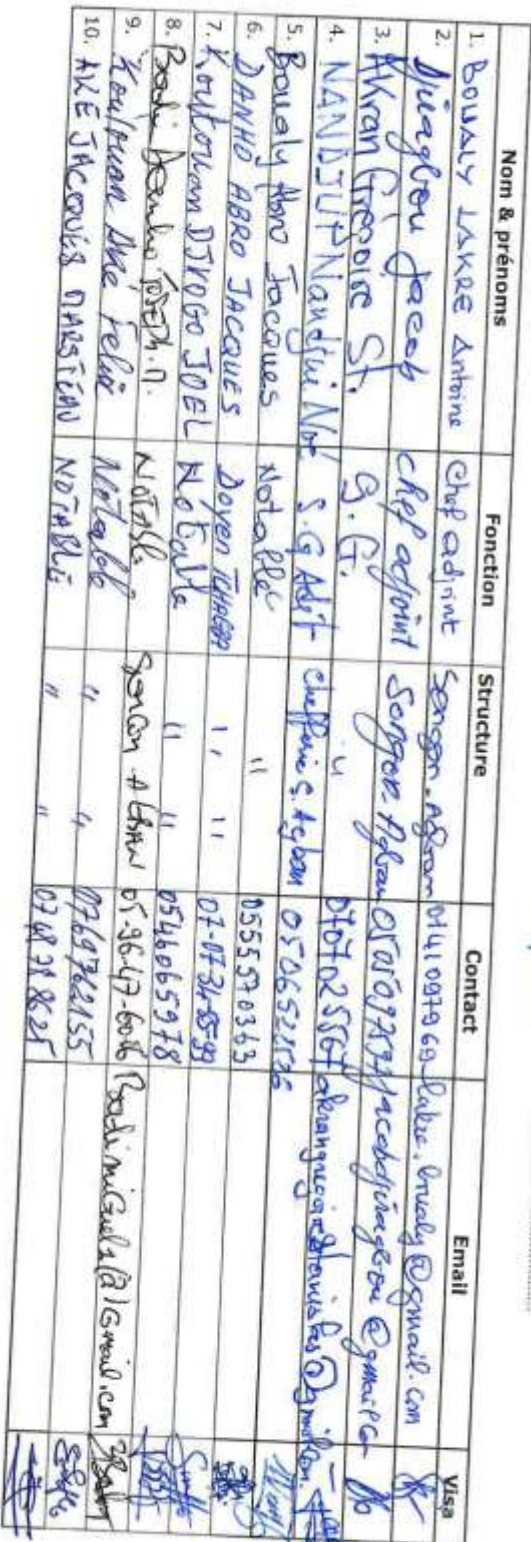 Nom & prénoms Fonction Structure Contact Email Visa
1. BOUALY LAKRE Antoine Chef adjoint Songon-Agban 0141097969 lakre.boualy@gmail.com
2. Djiagbou Jacob chef adjoint Songon-Agban 0505097897 jacobdjiagbou@gmail.com
3. AKran Grégoire St. S.G. " 0707025567 akrangregoirestanislas@gmail.com
4. NANDJUI Nandjui Noé S.G Adjt Chefferie S. Agban 0506521526
5. Boualy Abro Jacques Notable " 0555570363
6. DANHO ABRO JACQUES Doyen TCHAGBA " " 07-07-34-85-99
7. Koutouan DJROGO JOEL Notable " " 0546065978
8. Bodi Danho JOSEPH.M. NOTABLE Songon Agban 05-96-47-60-16
9. Koutouan Aké Felix Notable " " 0769762155
10. AKE JACQUES NOTABLE " "